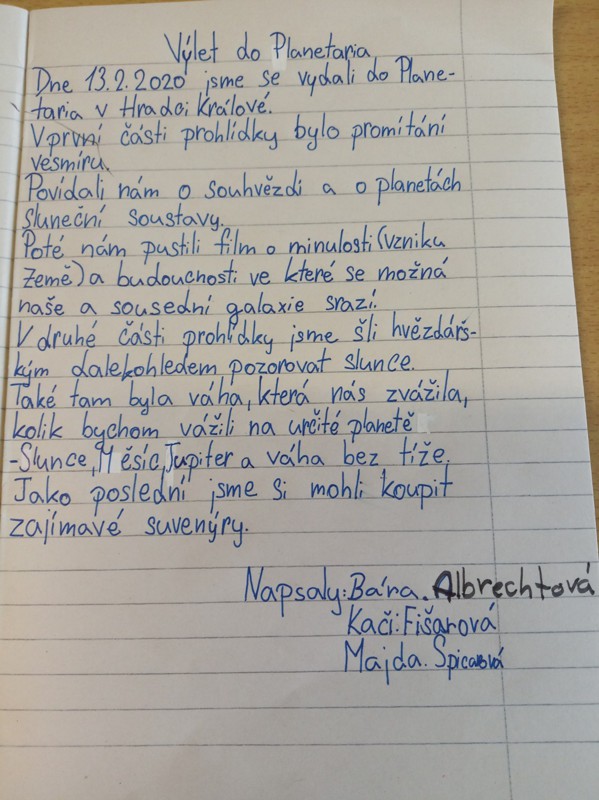 Výlet do Planetaria
Dne 13.2.2020 jsme se vydali do Plane-
taria v Hradci Králové.
V první části prohlídky bylo promítání
vesmíru.
Povídali nám o souhvězdi a o planetách
sluneční soustavy.
Poté nám pustili film o minulosti (vzniku
Země) a budoucnosti ve které se možná
naše a sousední galaxie srazí.
V druhé části prohlídky jsme šli hvězdářs-
kým dalekohledem pozorovat slunce.
Také tam byla váha, která nás zvážila,
kolik bychom vážili na určité planetě
-Slunce, Měsíc, Jupiter a váha bez tíže.
Jako poslední jsme si mohli koupit
zajímavé suvenýry.
Napsaly: Bára. Albrechtová
Kači: Fišarová
Majda. Spicarová